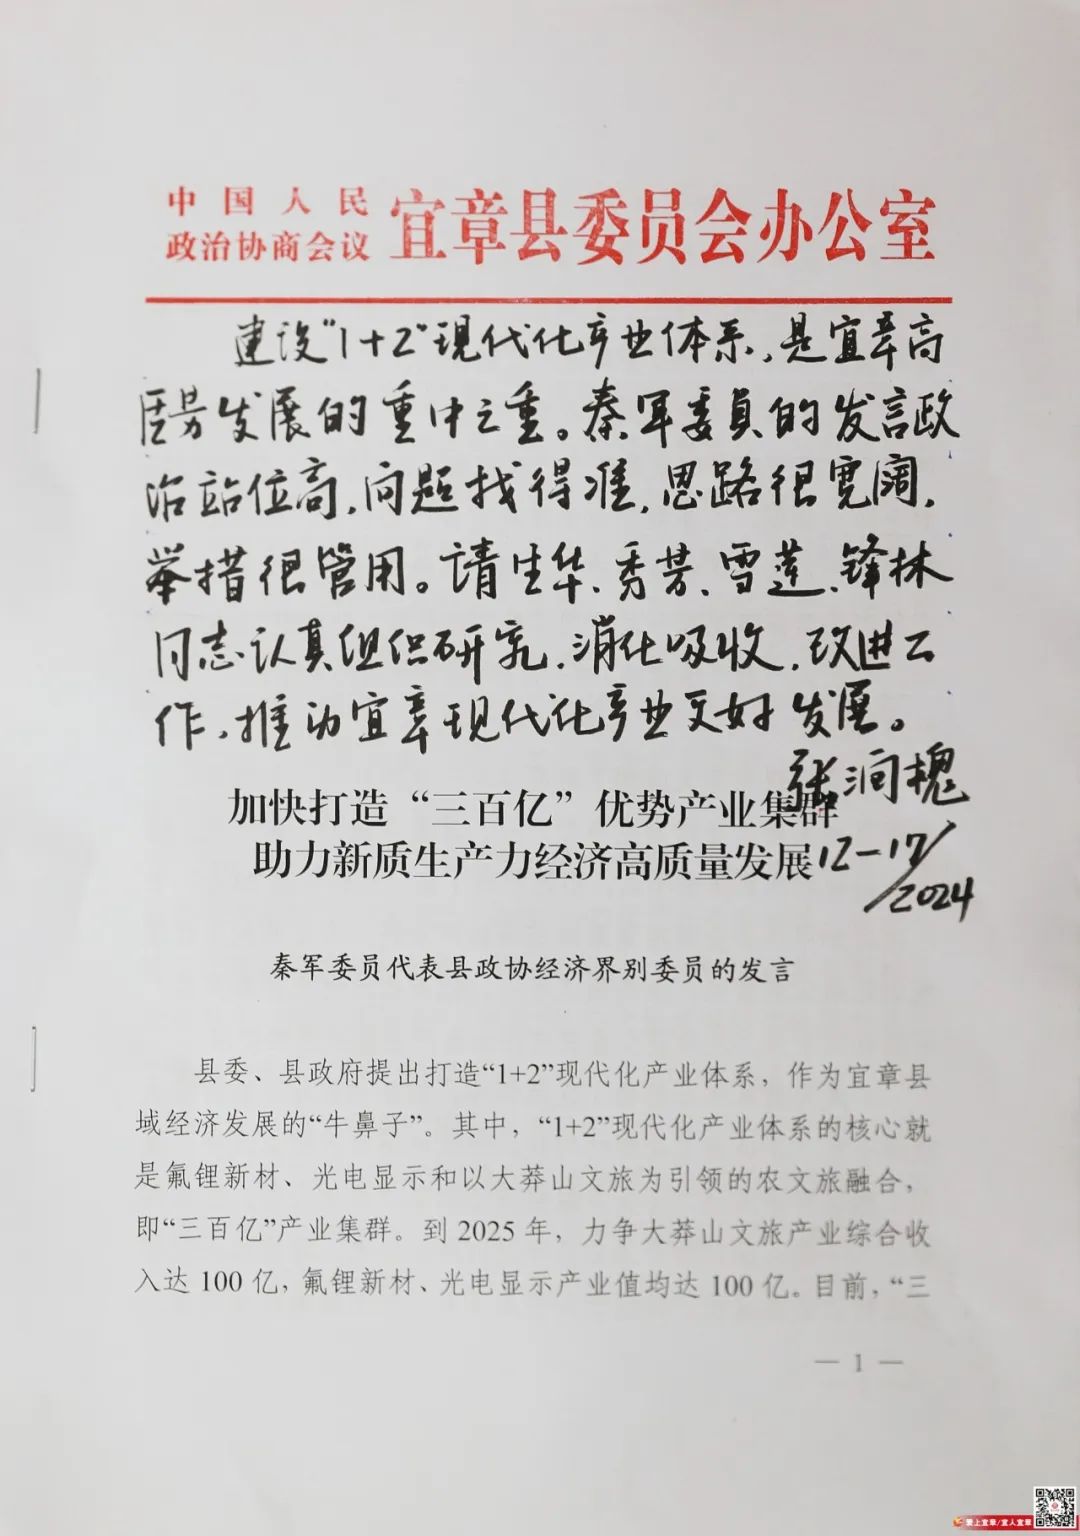 中国人民
政治协商会议
宜章县委员会办公室
建设“1+2”现代化产业体系，是宜章高
质量发展的重中之重。秦军委员的发言政
治站位高，问题找得准，思路很宽阔，
举措很管用。请生华、秀芳、雪莲、锋林
同志认真组织研究，消化吸收，改进工
作，推动宜章现代化产业更好发展。
张润槐
12-17/2024
加快打造“三百亿”优势产业集群
助力新质生产力经济高质量发展
秦军委员代表县政协经济界别委员的发言
县委、县政府提出打造“1+2”现代化产业体系，作为宜章县
域经济发展的“牛鼻子”。其中，“1+2”现代化产业体系的核心就
是氟锂新材、光电显示和以大莽山文旅为引领的农文旅融合，
即“三百亿”产业集群。到 2025 年，力争大莽山文旅产业综合收
入达 100 亿，氟锂新材、光电显示产业值均达 100 亿。目前，“三
— 1 —
爱上宜章/宜人宜章